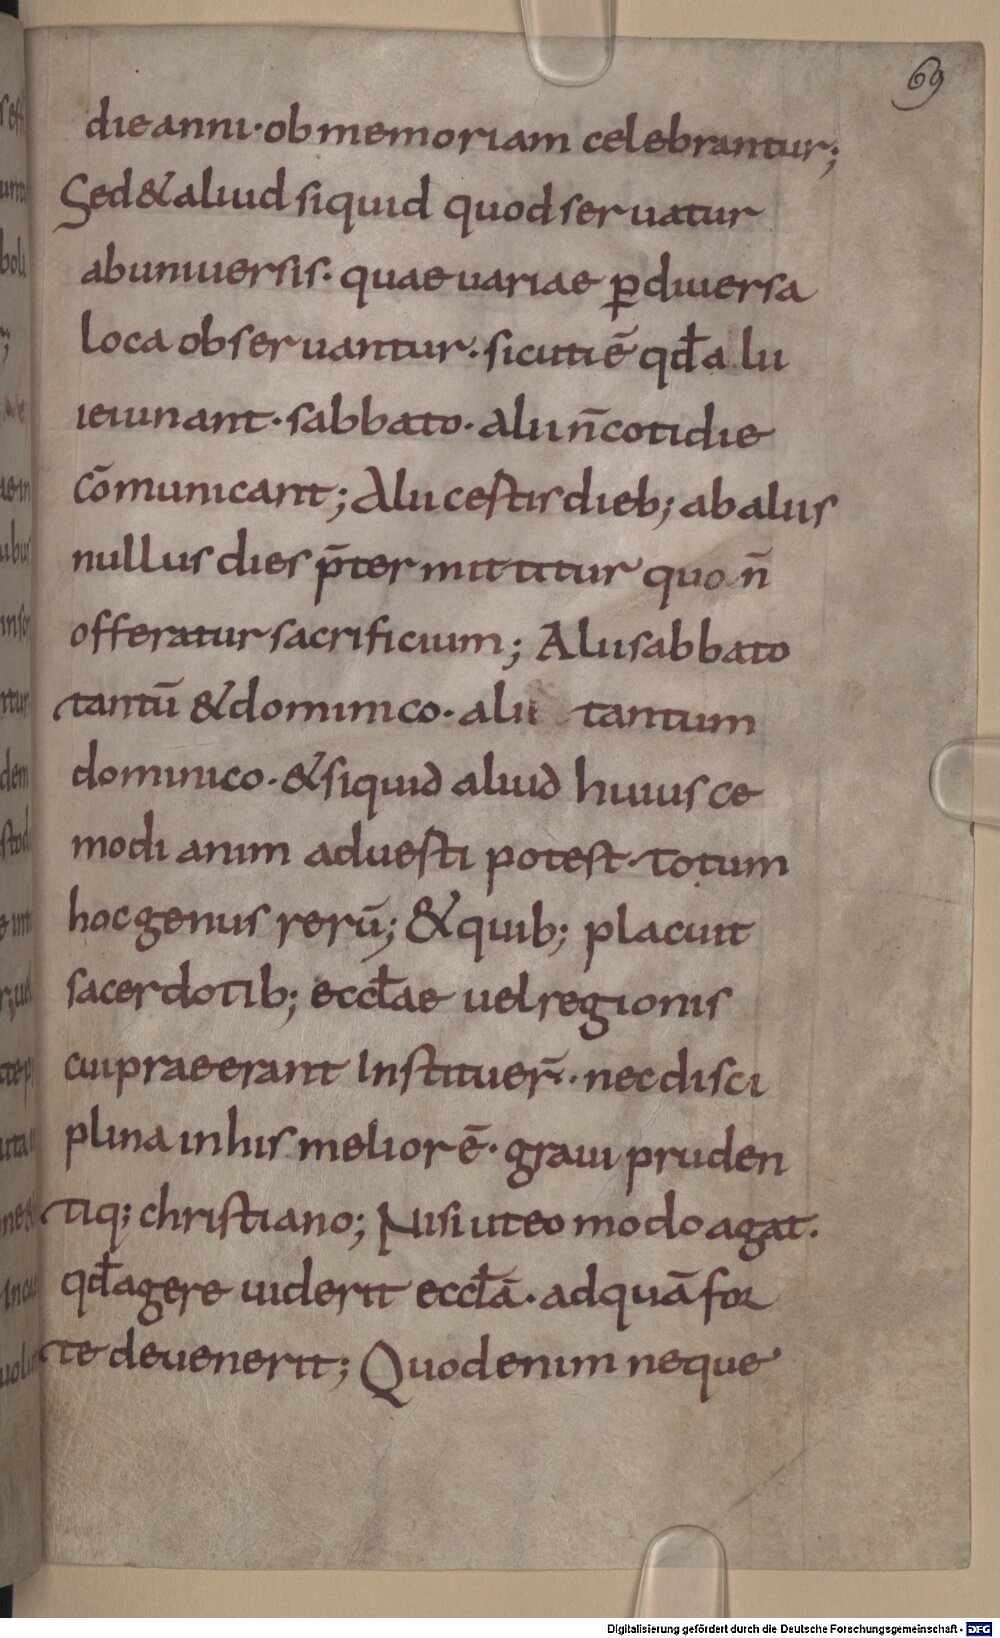 69
die anni· ob memoriam celebrantur;
Sed & aliud siquid quod seruatur
ab uniuersis· quae uariae p̱ diuersa
loca obseruantur· sicuti ē qđ alii
ieiunant· sabbato· alii n̄ cotidie
cōmunicant; Alii certis dieb; ab aliis
nullus dies p̄termittitur quo n̄
offeratur sacrificium; Alii sabbato
tantū & dominico· alii tantum
dominico· & siquid aliud huiusce
modi anim aduesti potest· totum
hoc genus rerū; & quib; placuit
sacerdotib; eccłae uel regionis
cui praeerant Instituer̄· nec disci
plina in his melior ē· graui pruden
tiq; christiano; Nisi ut eo modo agat·
qđ agere uiderit eccłā· ad quā for
te deuenerit; Quod enim neque
Digitalisierung gefördert durch die Deutsche Forschungsgemeinschaft - DFG